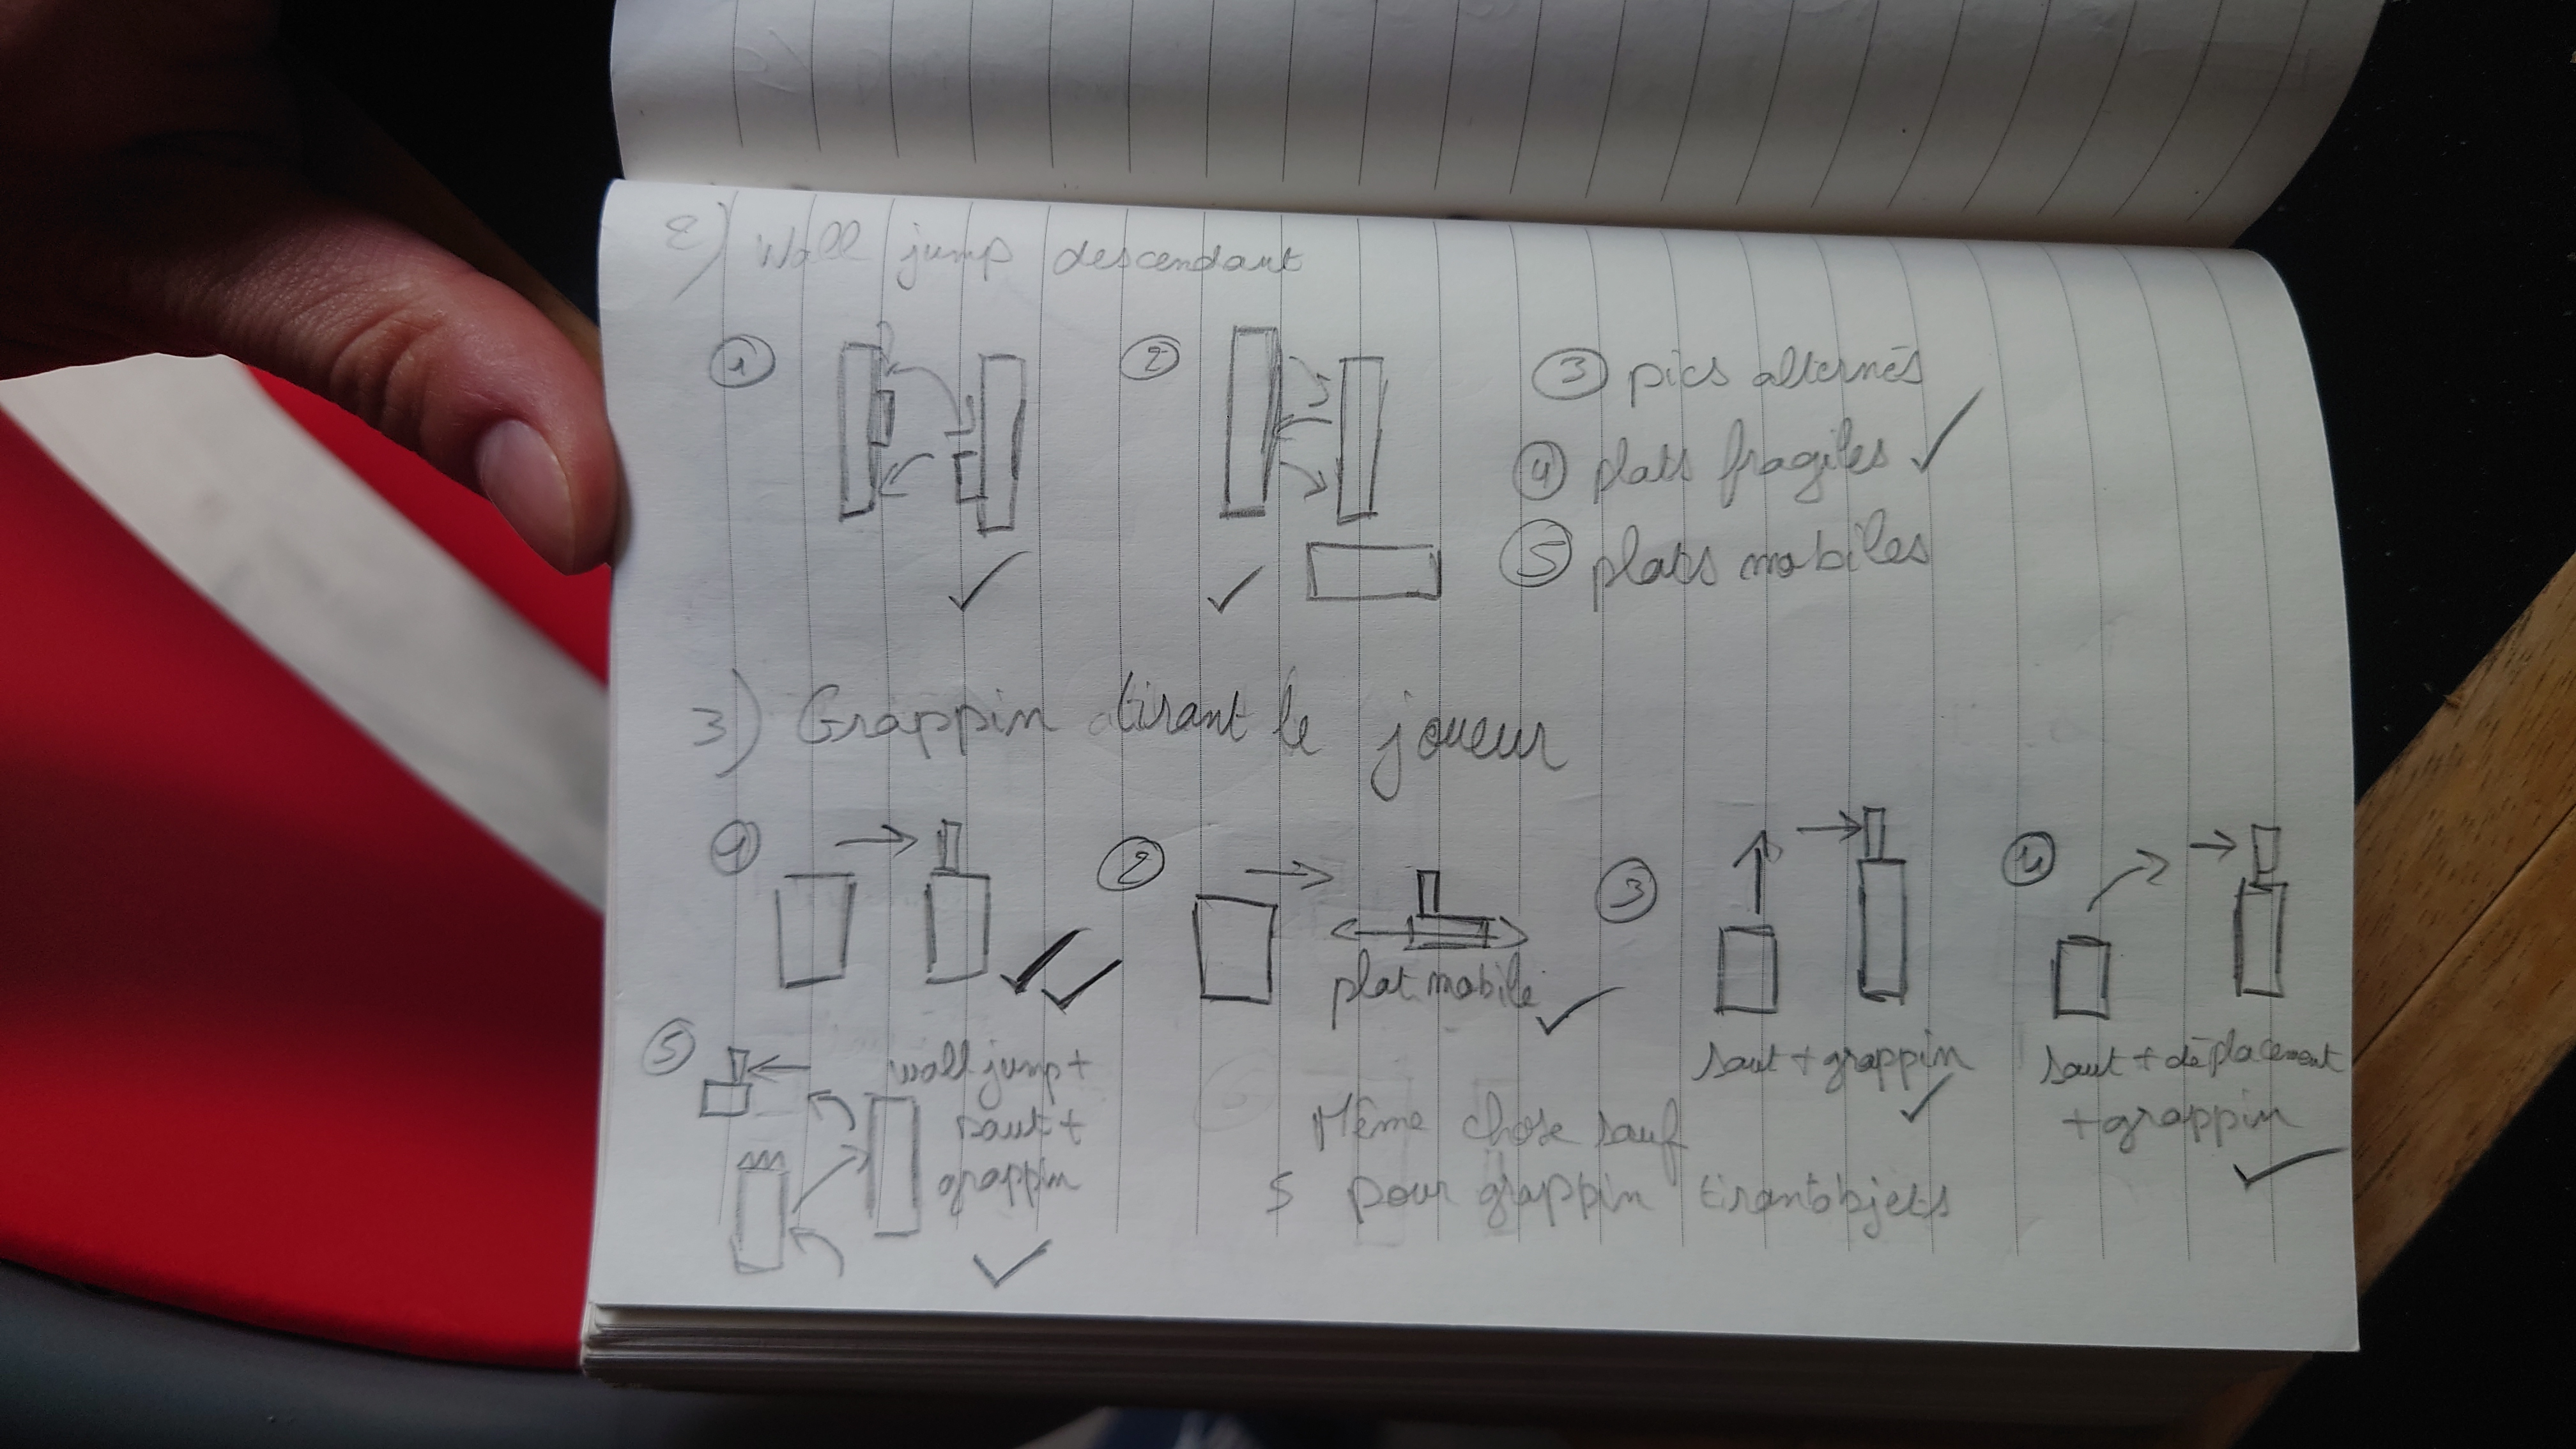 2) Wall jump descendant
① ② ③ pics alternés
④ plats fragiles
⑤ plats mobiles
3) Grappin tirant le joueur
① ② ③ ④
plat mobile
saut + grappin
saut + déplacement
+ grappin
⑤ wall jump +
saut +
grappin
Même chose sauf
5 pour grappin tirant objets